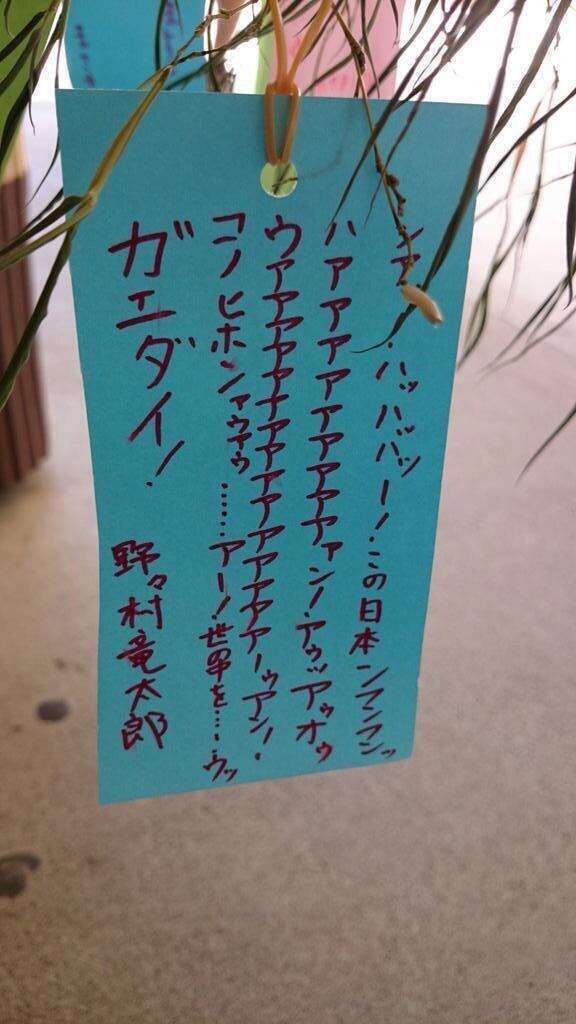 ンア ・ハッハッハッー！この日本ンフンフンッ
ハアアアアアアアアアァン！アゥッアゥオゥ
ウアアアアアナアアアアアアアアァーゥアン！
コノヒホンァゥァゥ……アー！世の中を……ウッ
ガエダイ！
野々村竜太郎